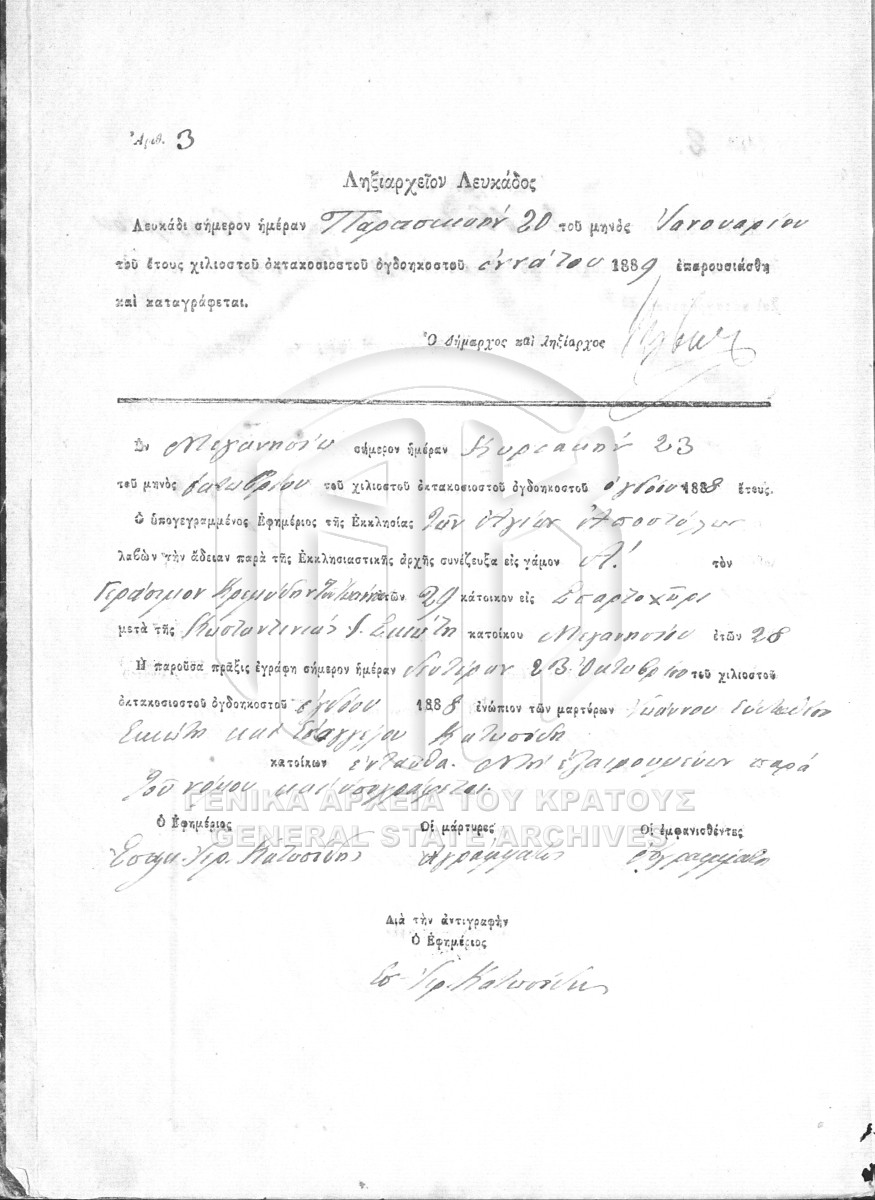 Ἀριθ. 3
Ληξιαρχεῖον Λευκάδος
Λευκάδι σήμερον ἡμέραν Παρασκευήν 20 τοῦ μηνὸς Ἰανουαρίου
τοῦ ἔτους χιλιοστοῦ ὀκτακοσιοστοῦ ὀγδοηκοστοῦ ἐννάτου 1889 ἐπαρουσιάσθη
καὶ καταγράφεται.
Ὁ Δήμαρχος καὶ ληξίαρχος
Ἐν Μεγανησίω σήμερον ἡμέραν Κυριακήν 23
τοῦ μηνὸς τοῦ χιλιοστοῦ ὀκτακοσιοστοῦ ὀγδοηκοστοῦ ὀγδόου 1888 ἔτους.
Ὁ ὑπογεγραμμένος Ἐφημέριος τῆς Ἐκκλησίας τῶν Ἁγίων Ἀποστόλων
λαβὼν τὴν ἄδειαν παρὰ τῆς Ἐκκλησιαστικῆς ἀρχῆς συνέζευξα εἰς γάμον Α! τὸν
Γεράσιμον ἐτῶν 29 κάτοικον εἰς Σπαρτοχῶρι
μετὰ τῆς κατοίκου Μεγανησίου ἐτῶν 28
Ἡ παροῦσα πρᾶξις ἐγράφη σήμερον ἡμέραν 23 Ὀκτωβρίου τοῦ χιλιοστοῦ
ὀκτακοσιοστοῦ ὀγδοηκοστοῦ ὀγδόου 1888 ἐνώπιον τῶν μαρτύρων Ἰωάννου
καὶ Κατωπόδη
κατοίκων ἐνταῦθα. Μὴ ἐξαιρουμένων παρὰ
τοῦ νόμου καὶ ὑπογράφεται.
ΓΕΝΙΚΑ ΑΡΧΕΙΑ ΤΟΥ ΚΡΑΤΟΥΣ
Ὁ Ἐφημέριος Οἱ μάρτυρες Οἱ ἐμφανισθέντες
GENERAL STATE ARCHIVES
Ἱερ. Κατωπόδης Ἀγράμματοι Ἀγράμματοι
Διὰ τὴν ἀντιγραφὴν
Ὁ Ἐφημέριος
Ἱερ. Κατωπόδης